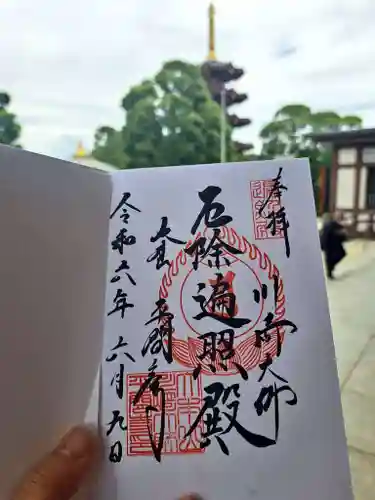 奉拝
川崎大師
厄除遍照殿
大本山平間寺
令和六年六月九日